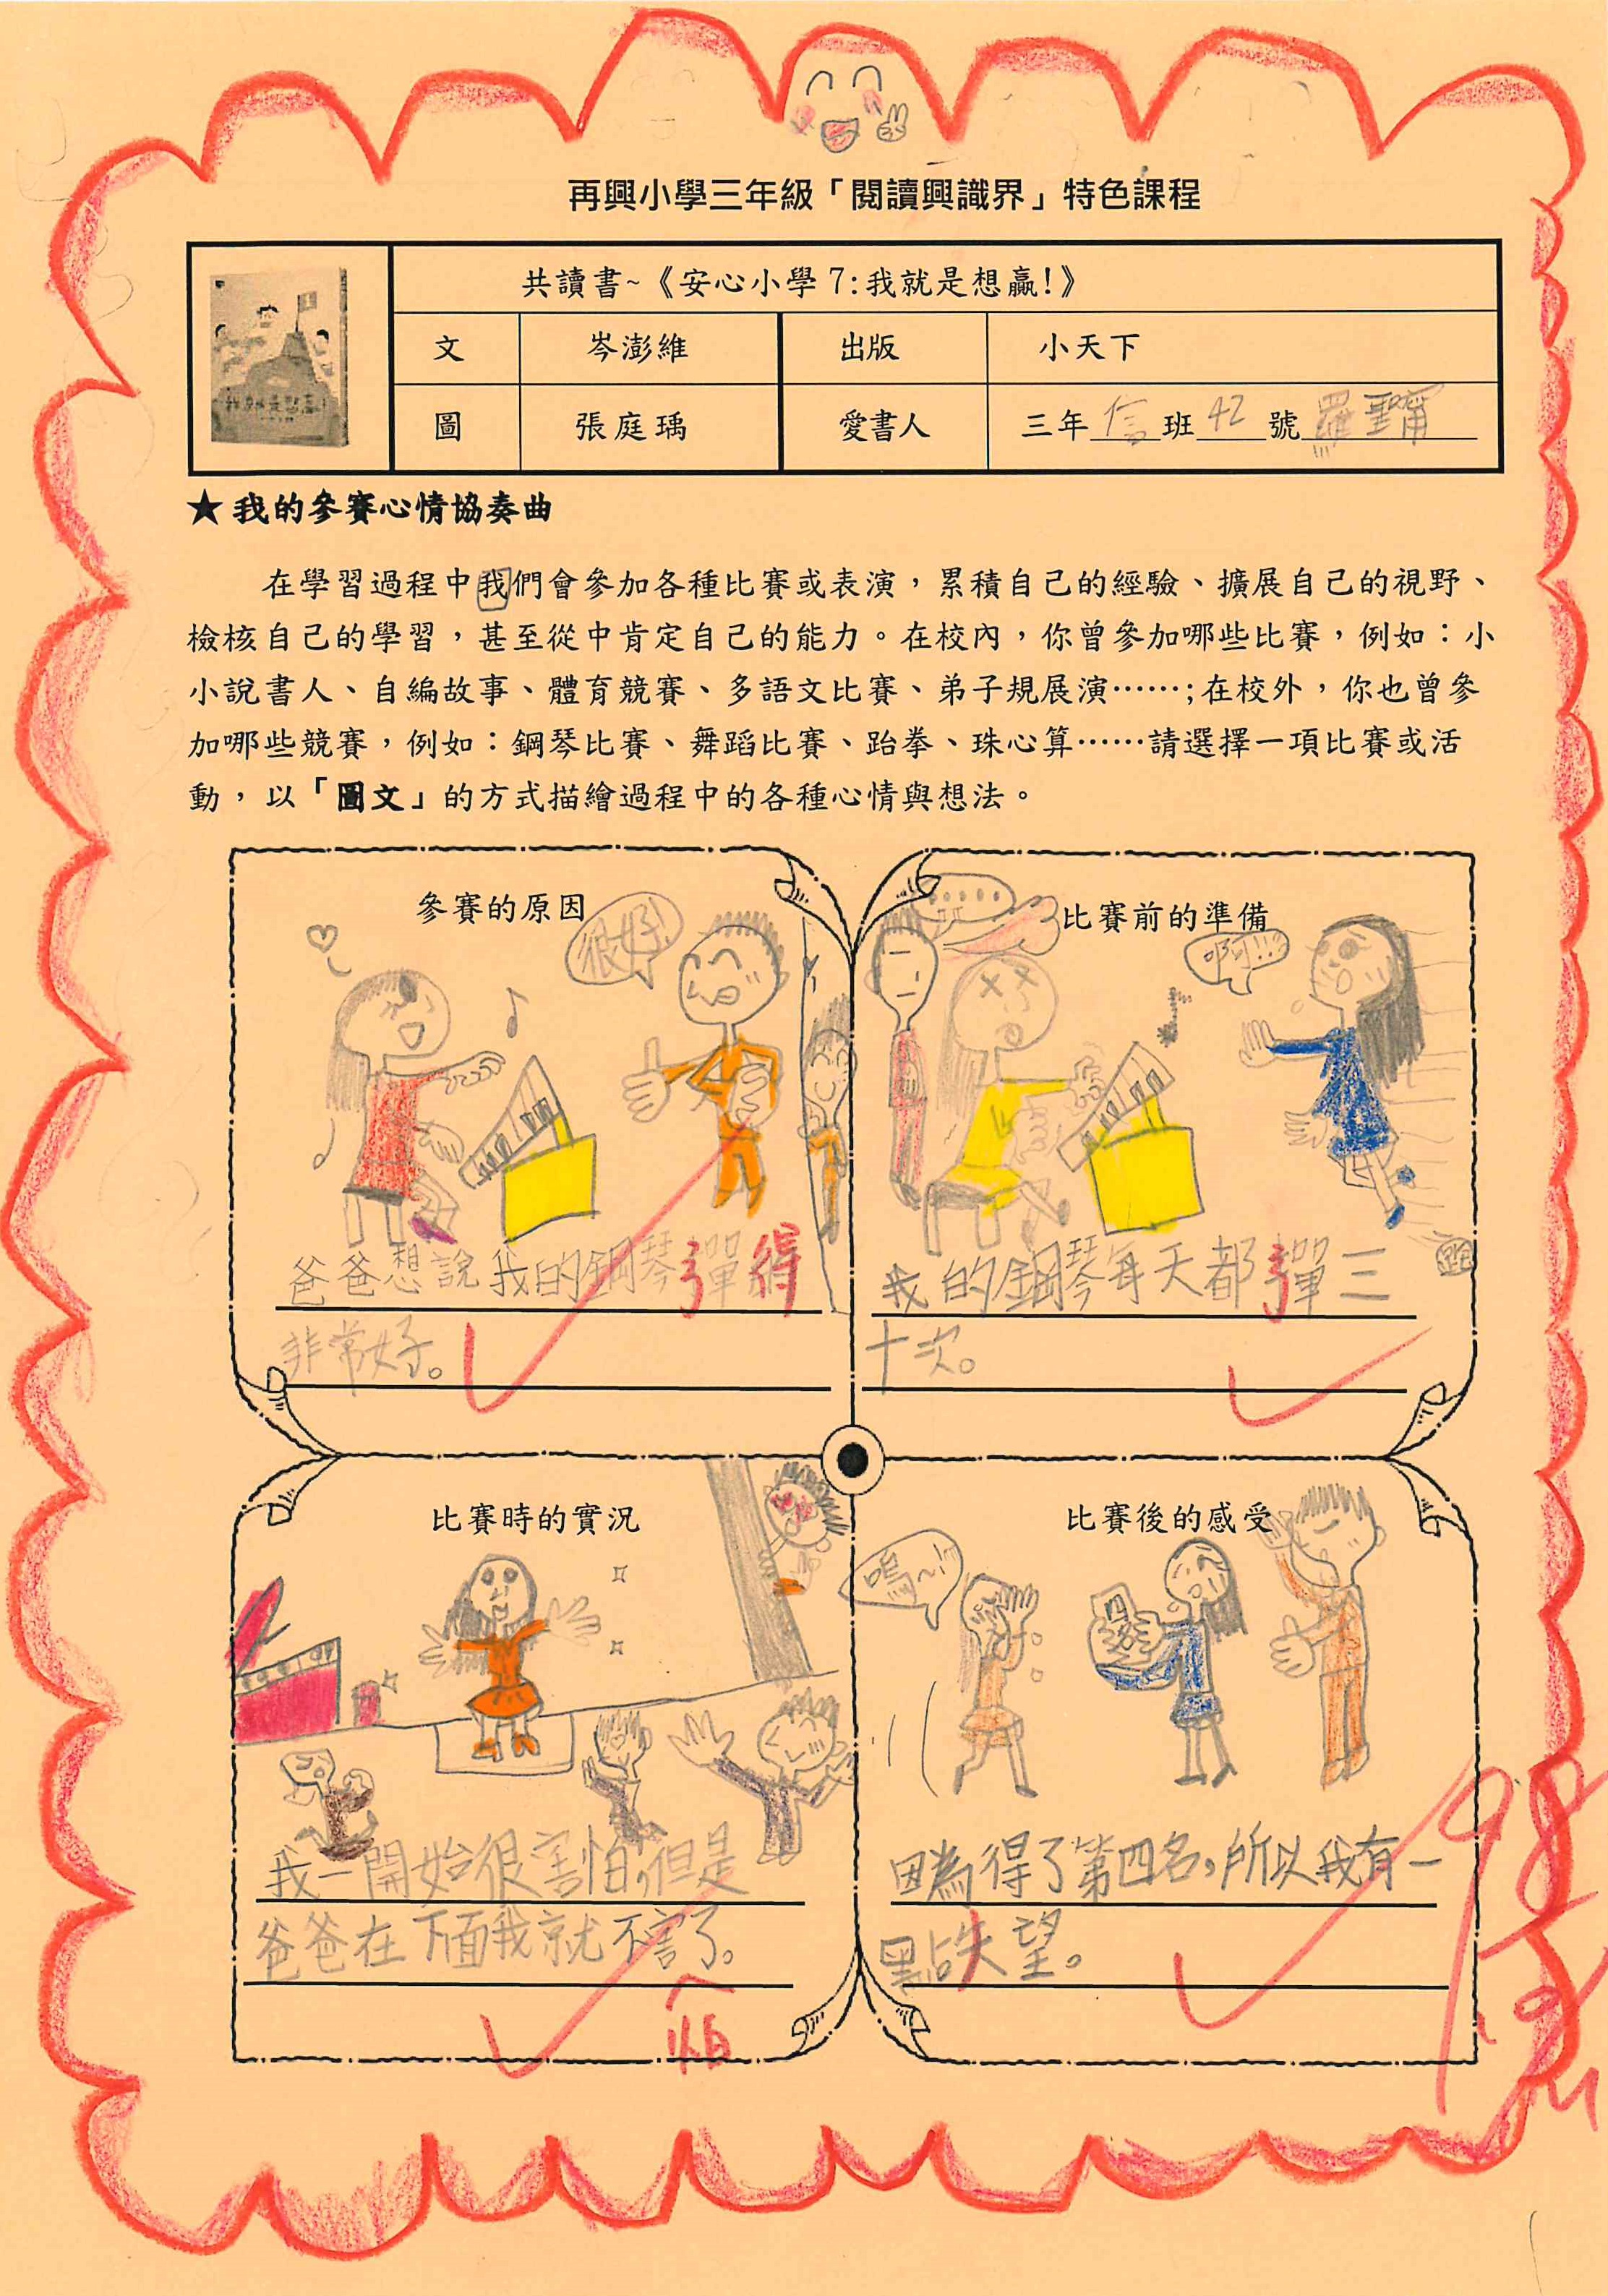 再興小學三年級「閱讀興識界」特色課程
共讀書~《安心小學 7:我就是想贏!》
文 岑澎維 出版 小天下
我就是想贏!
圖 張庭瑀 愛書人 三年信班42號羅聖甯
★我的參賽心情協奏曲
在學習過程中我們會參加各種比賽或表演，累積自己的經驗、擴展自己的視野、
檢核自己的學習，甚至從中肯定自己的能力。在校內，你曾參加哪些比賽，例如：小
小說書人、自編故事、體育競賽、多語文比賽、弟子規展演……;在校外，你也曾參
加哪些競賽，例如：鋼琴比賽、舞蹈比賽、跆拳、珠心算……請選擇一項比賽或活
動，以「圖文」的方式描繪過程中的各種心情與想法。
參賽的原因
很好!
爸爸想說我的鋼琴彈得
非常好。
比賽前的準備
......
啊!!!
我的鋼琴每天都彈三
十次。
比賽時的實況
我一開始很害怕,但是
爸爸在下面我就不害了。
怕
比賽後的感受
嗚~!!
四
因為得了第四名,所以我有一
點失望。
98